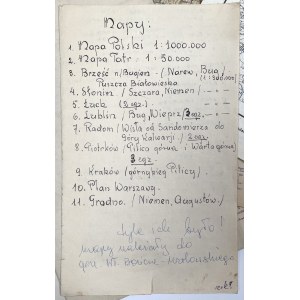 Mapy:
1. Mapa Polski 1:1000.000
2. Mapa Tatr 1:50.000
3. Brześć n/Bugiem - (Narew, Bug)
Puszcza Białowieska (1:300.000)
4. Słonim (Szczara, Niemen) - - -
5. Łuck (2 egz.) - - -
6. Lublin (Bug, Wieprz) 2 egz - - -
7. Radom (Wisła od Sandomierza do
Góry Kalwarji) 2 egz
8. Piotrków (Pilica górna i Warta górna)
3 egz
9. Kraków (górny bieg Pilicy)
10. Plan Warszawy.
11. Grodno. (Niemen, Augustów)
Tyle ich było!
mapy należały do
gen. M. -